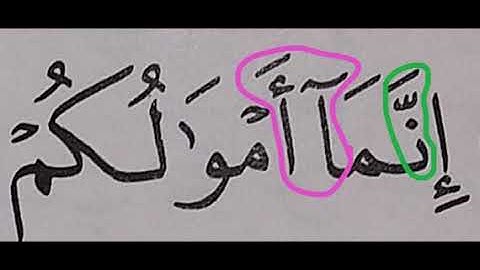 إِنَّمَآ أَمْوَٰلُكُمْ